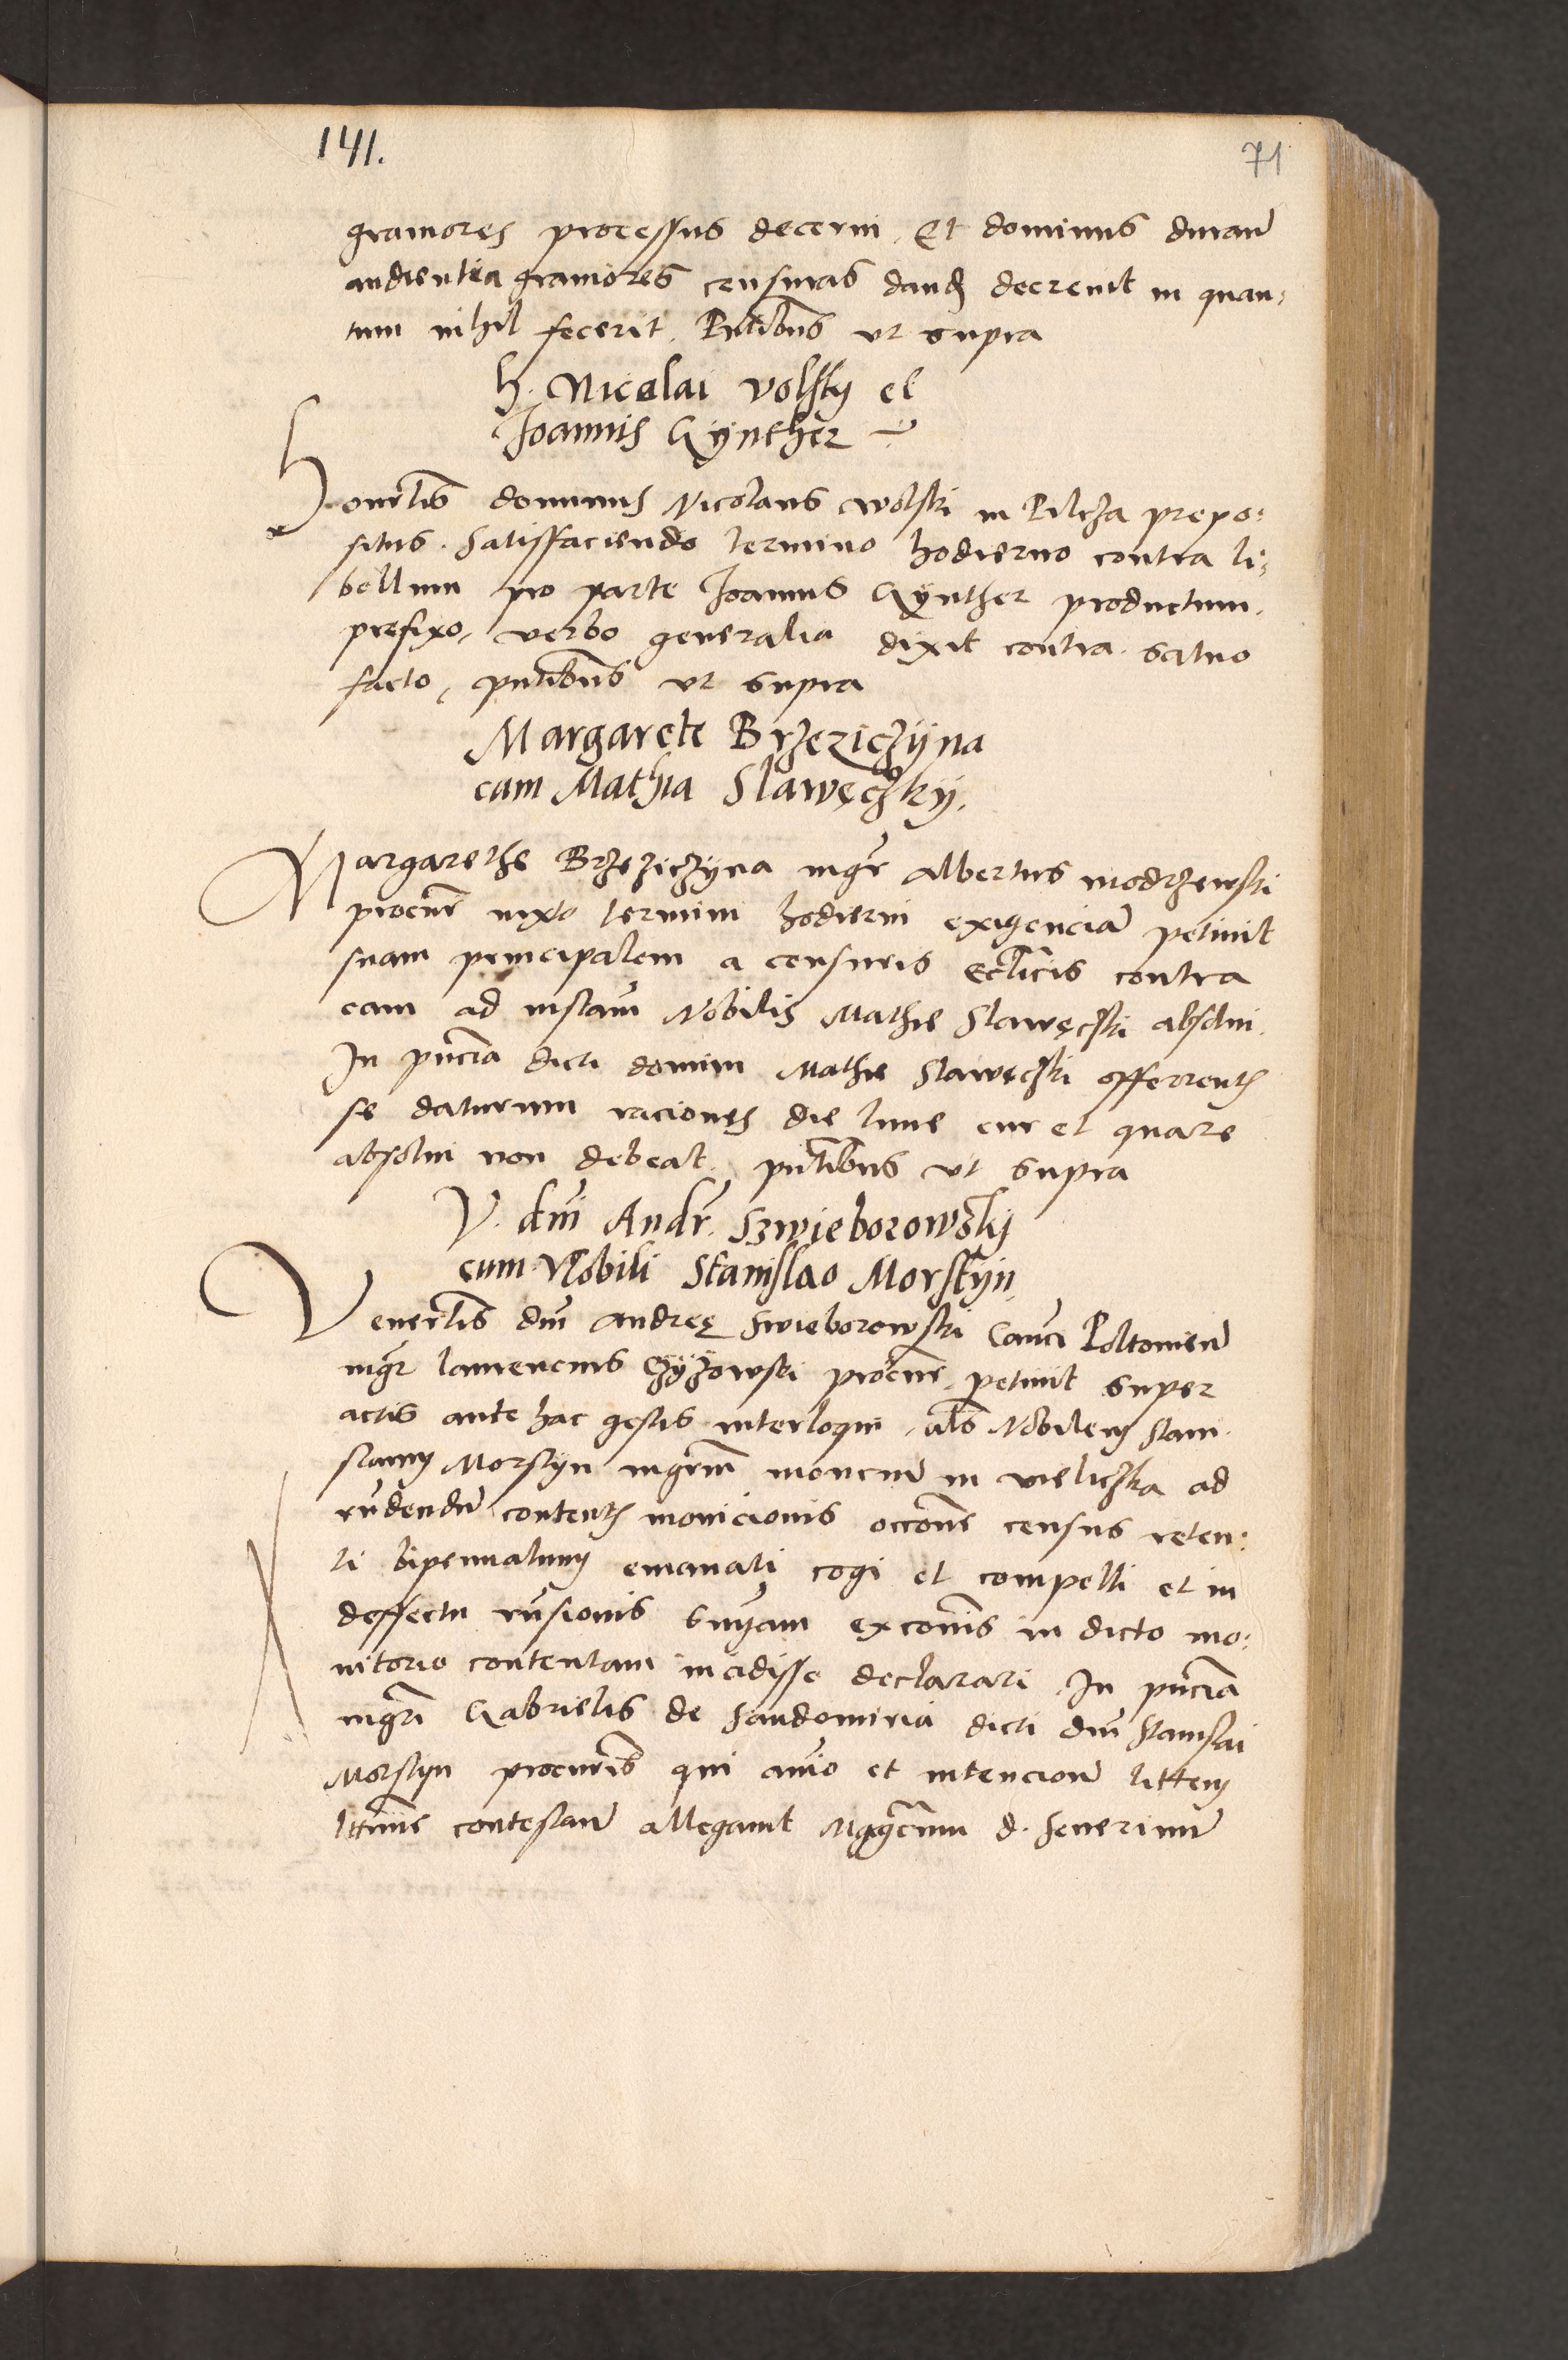 141.
71
graviores processus decerni. Et dominus duran
audientia graviores censuras dand decrevit in quan:
tum nihil fecerit. Pntibus ut supra
H. Nicolai Volsky et
Joannis Gÿnther
Honorlis dominus Nicolaus Wolski in Pilcza prepo:
situs. Satisfaciendo termino hodierno contra li:
bellum pro parte Joannis Gÿnther productum.
prefixo, verbo generalia dixit contra. salvo
facto, pntibus ut supra
Margarete Brzeziczÿna
cum Mathia Slawęczkÿ.
Margarethe Brzeziczÿna mgr Albertus Modrzewski
procur iuxta termini hodierni exigenciam petivit
suam principalem a censuris ecclicis contra
eam ad instam Nobilis Mathie Slawęczki absolvi.
In pncia dicti domini Mathie Slawęczki offerent
se daturum raciones die lune cur et quare
absolvi non debeat. pntibus ut supra
V. dni Andr. Szwieborowskÿ
cum Nobili Stanislao Morstÿn
Venerlis dni Andreę Swieborowski Canci Poltovien
mgr laurencius Czÿzowski procur. petivit super
actis ante hac gestis interloqui. als Nobilem Stani
slaum Morstÿn ingrem moncium in vieliczka ad
rndendum content monicionis occone census reten:
ti bipennalium emanati cogi et compelli et in
deffectu rnsionis snyam exconis in dicto mo:
nitorio contentam incidisse declarari. In pncia
mgri Gabrielis de Sandomiria dicti dni Stanislai
Morstÿn procuris qui animo et intencione littem
lttime contestan allegavit Mgcum d. Severinum